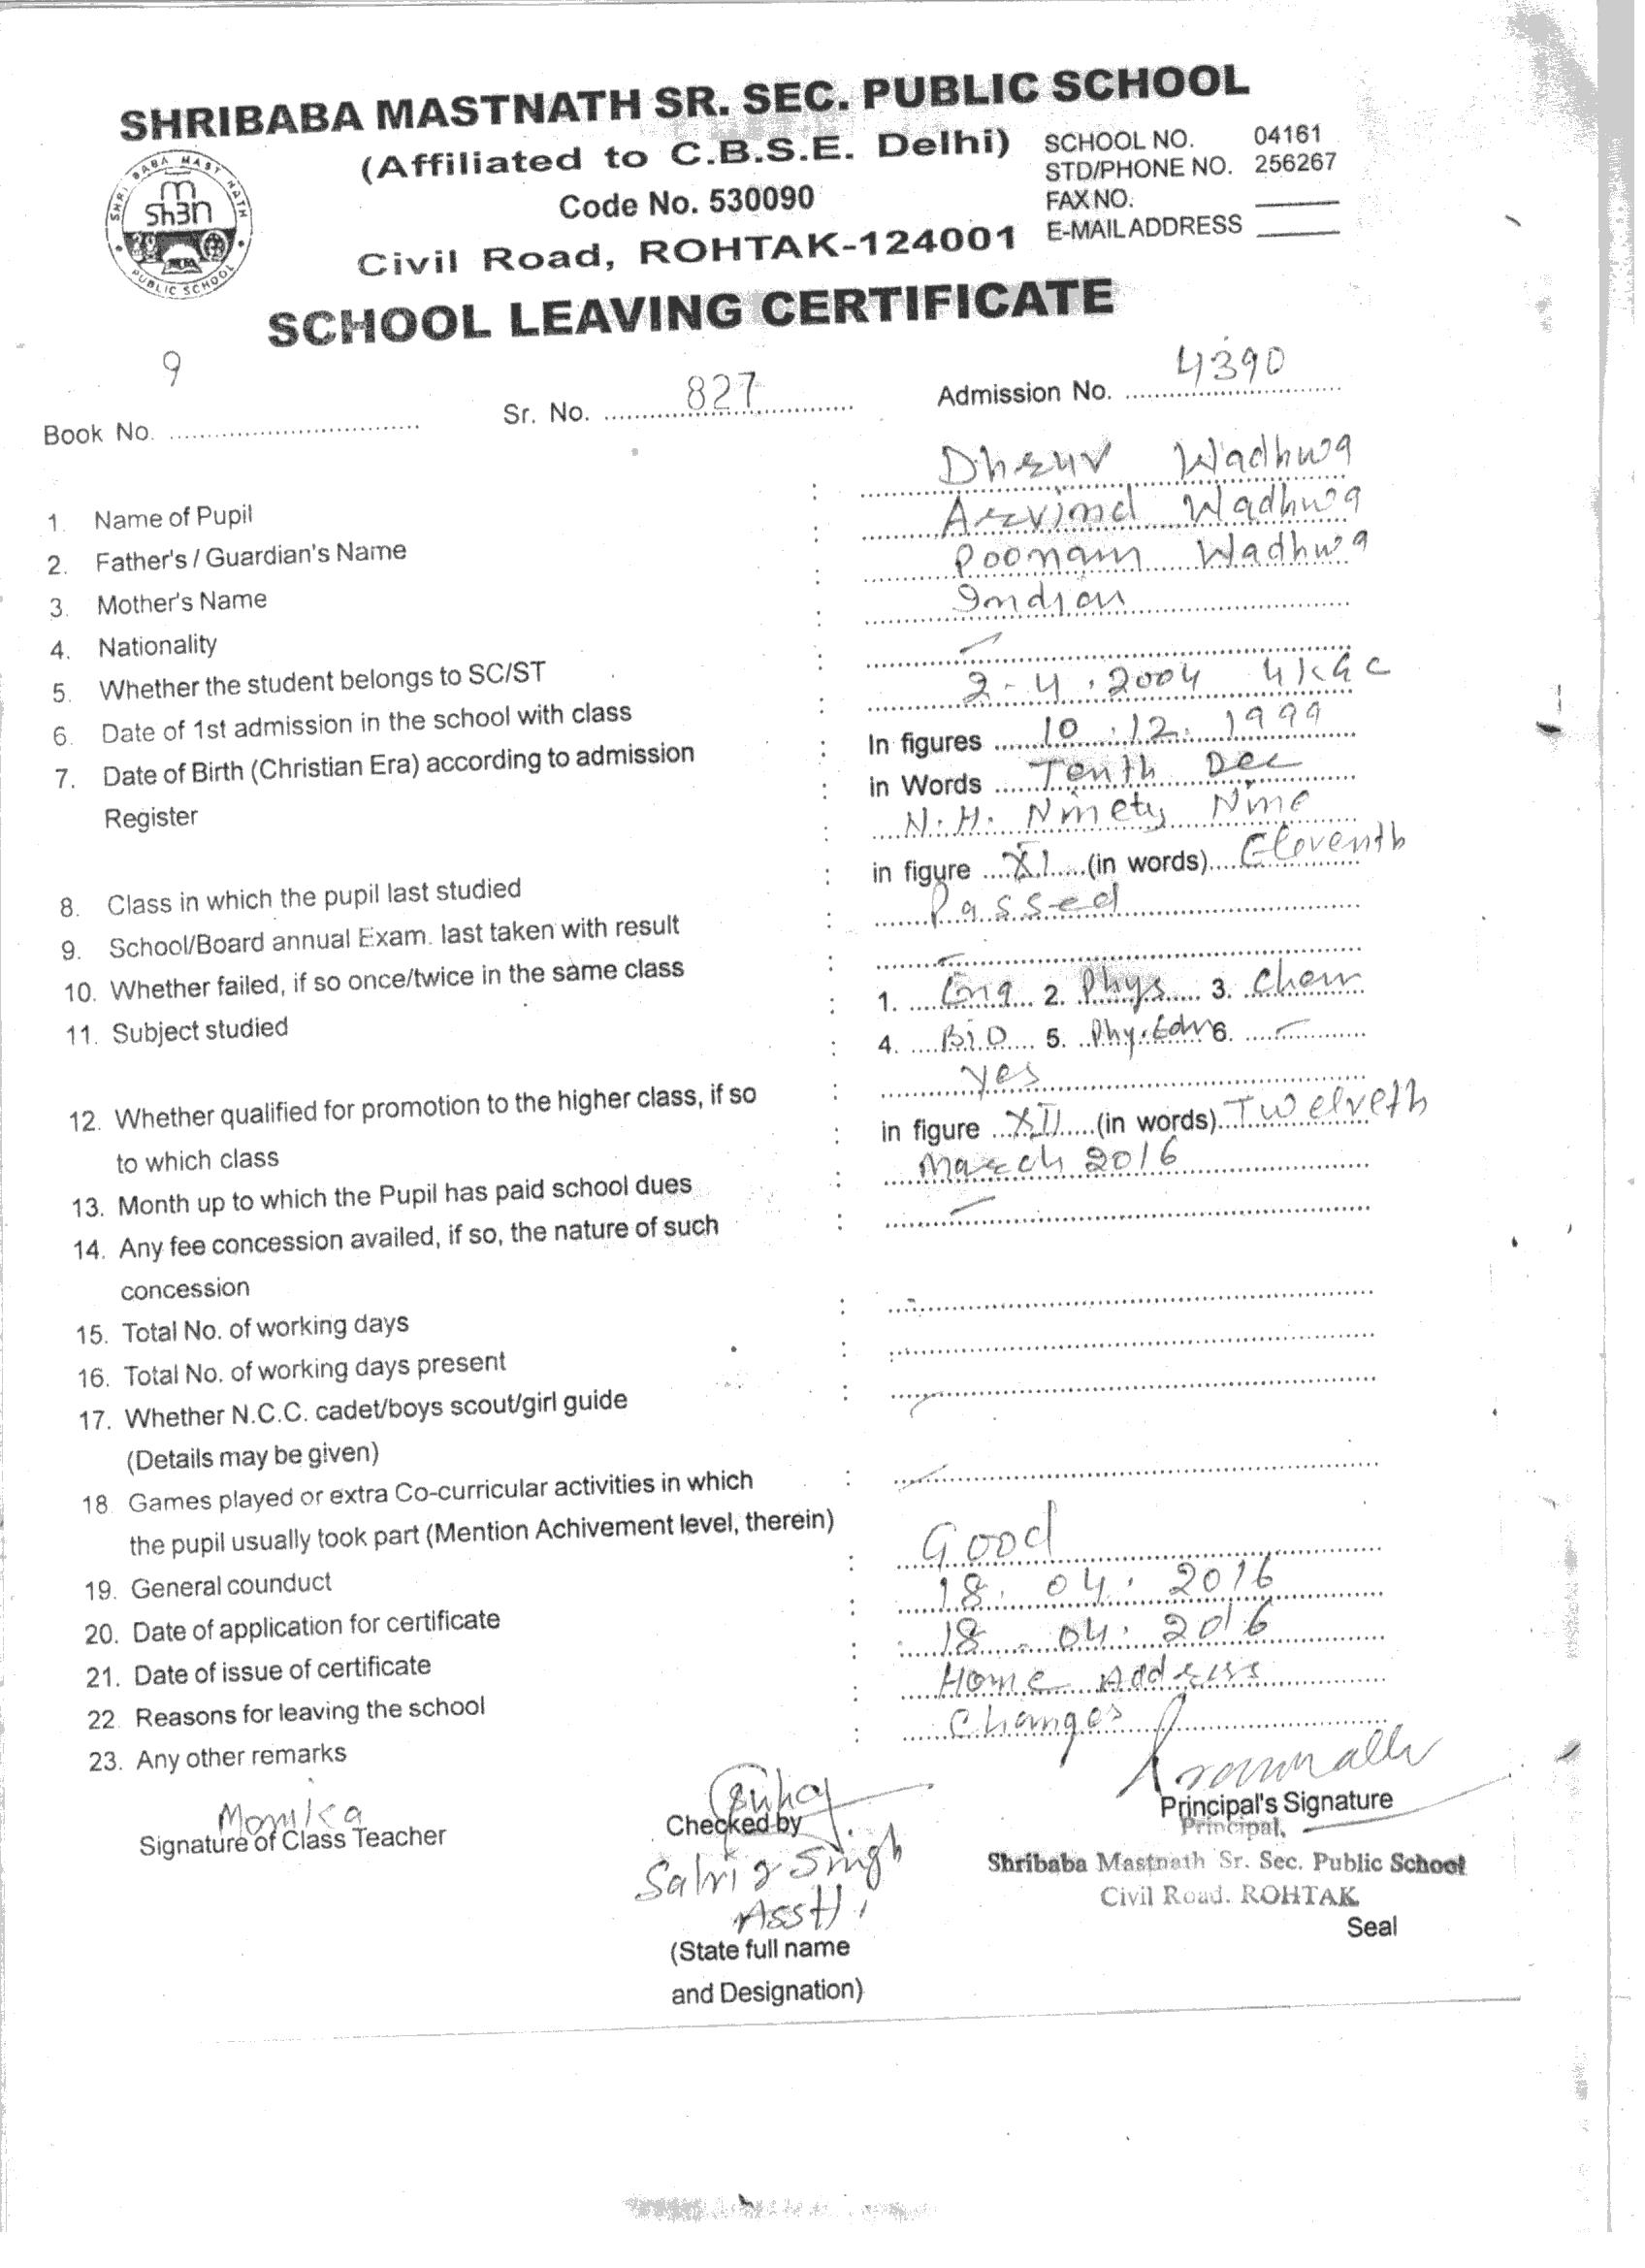 SHRIBABA MASTNATH SR. SEC. PUBLIC SCHOOL
(Affiliated to C.B.S.E. Delhi)
Code No. 530090
Civil Road, ROHTAK-124001
SCHOOL NO. 04161
STD/PHONE NO. 256267
FAX NO.
E-MAIL ADDRESS
SHRI BABA MAST NATH
PUBLIC SCHOOL
SCHOOL LEAVING CERTIFICATE
Book No. 9 Sr. No. 827 Admission No. 4390
1. Name of Pupil : Dhruv Wadhwa
2. Father's / Guardian's Name : Arvind Wadhwa
3. Mother's Name : Poonam Wadhwa
4. Nationality : Indian
5. Whether the student belongs to SC/ST : -
6. Date of 1st admission in the school with class : 2-4.2004
7. Date of Birth (Christian Era) according to admission : In figures 10.12.1999
Register : in Words Tenth Dec
N.H. Ninety Nine
8. Class in which the pupil last studied : in figure XI (in words) Eleventh
9. School/Board annual Exam. last taken with result : Passed
10. Whether failed, if so once/twice in the same class : -
11. Subject studied : 1. Eng 2. Phys 3. Chem
4. Bio 5. Phy.Edn 6. -
12. Whether qualified for promotion to the higher class, if so : yes
to which class : in figure XII (in words) Twelveth
13. Month up to which the Pupil has paid school dues : March 2016
14. Any fee concession availed, if so, the nature of such : -
concession
15. Total No. of working days :
16. Total No. of working days present :
17. Whether N.C.C. cadet/boys scout/girl guide : -
(Details may be given)
18. Games played or extra Co-curricular activities in which : -
the pupil usually took part (Mention Achivement level, therein)
19. General counduct : Good
20. Date of application for certificate : 18.04.2016
21. Date of issue of certificate : 18-04.2016
22. Reasons for leaving the school : Home Address
23. Any other remarks : Changes
Monika
Signature of Class Teacher
Checked by
Singh
Asstt.
(State full name
and Designation)
Principal's Signature
Principal,
Shribaba Mastnath Sr. Sec. Public School
Civil Road. ROHTAK
Seal